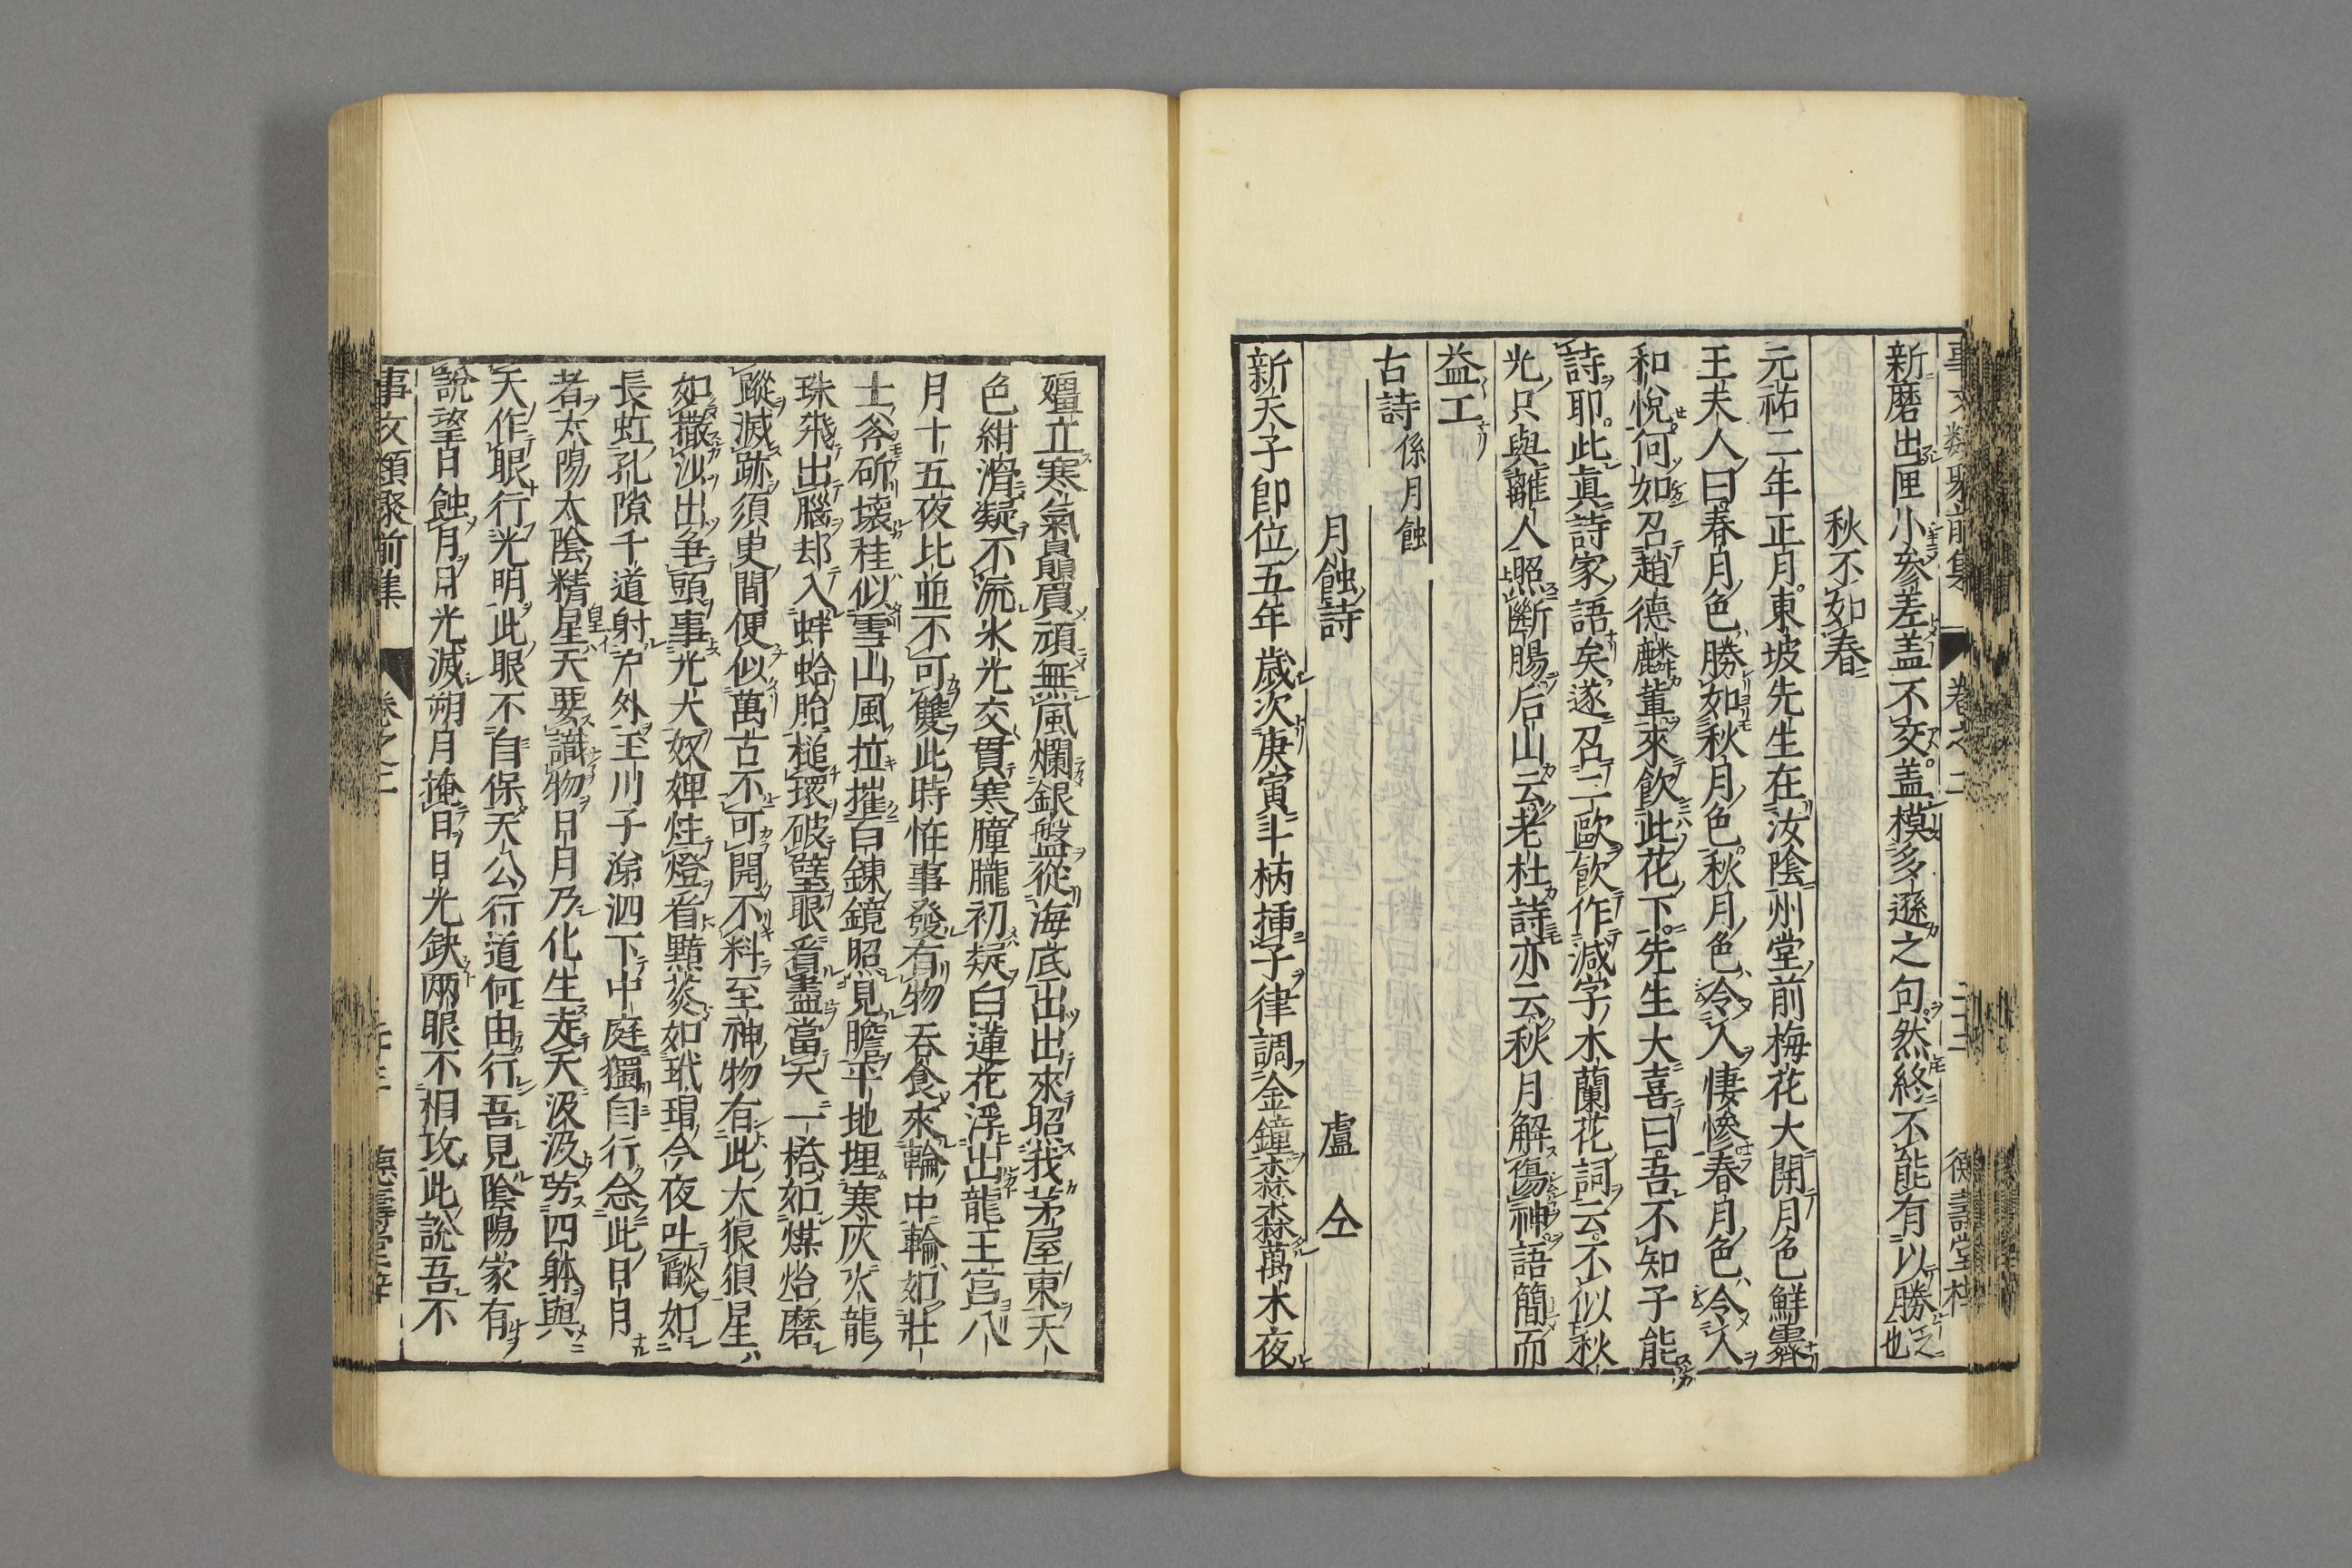 新磨出匣小參差盖不交盖模多遜之句然終不能有以勝之也
秋不如春
元祐二年正月東坡先生在汝陰州堂前梅花大開月色鮮霽
王夫人曰春月色勝如秋月色秋月色令人悽慘春月色令人
和悅何如召趙德麟輩來飲此花下先生大喜曰吾不知子能
詩耶此真詩家語矣遂召二歐飲作減字木蘭花詞云不似秋
光只與離人照斷腸后山云老杜詩亦云秋月解傷神語簡而
益工
古詩 係月蝕
月蝕詩 盧仝
新天子卽位五年歲次庚寅斗柄揷子律調金鐘森森萬木夜
殭立寒氣贔屓頑無風爛銀盤從海底出出來照我茅屋東天
色紺滑凝不流氷光交貫寒朣朧初疑白蓮花浮出龍王宮八
月十五夜比並不可雙此時怪事發有物吞食來輪中輪如壯
士斧斫壊桂似雪山風拉摧百鍊鏡照見膽平地埋寒灰火龍
珠飛出腦却入蚌蛤胎槌環破璧眼看盡當天一搭如煤炲磨
蹤滅跡須臾間便似萬古不可開不料至神物有此大狼狽星
如撒沙出争頭事光大奴婢炷燈㸔黯菼如玳瑁今夜吐燄如
長虹孔隙千道射戶外玉川子涕泗下中庭獨自行念此日月
者太陽太陰精星天要識物日月乃化生走天汲汲勞四躰與
天作眼行光明此眼不自保天公行道何由行吾見陰陽家有
說望日蝕月月光滅朔月掩日日光缺兩眼不相攻此說吾不
事文類聚前集 卷之二